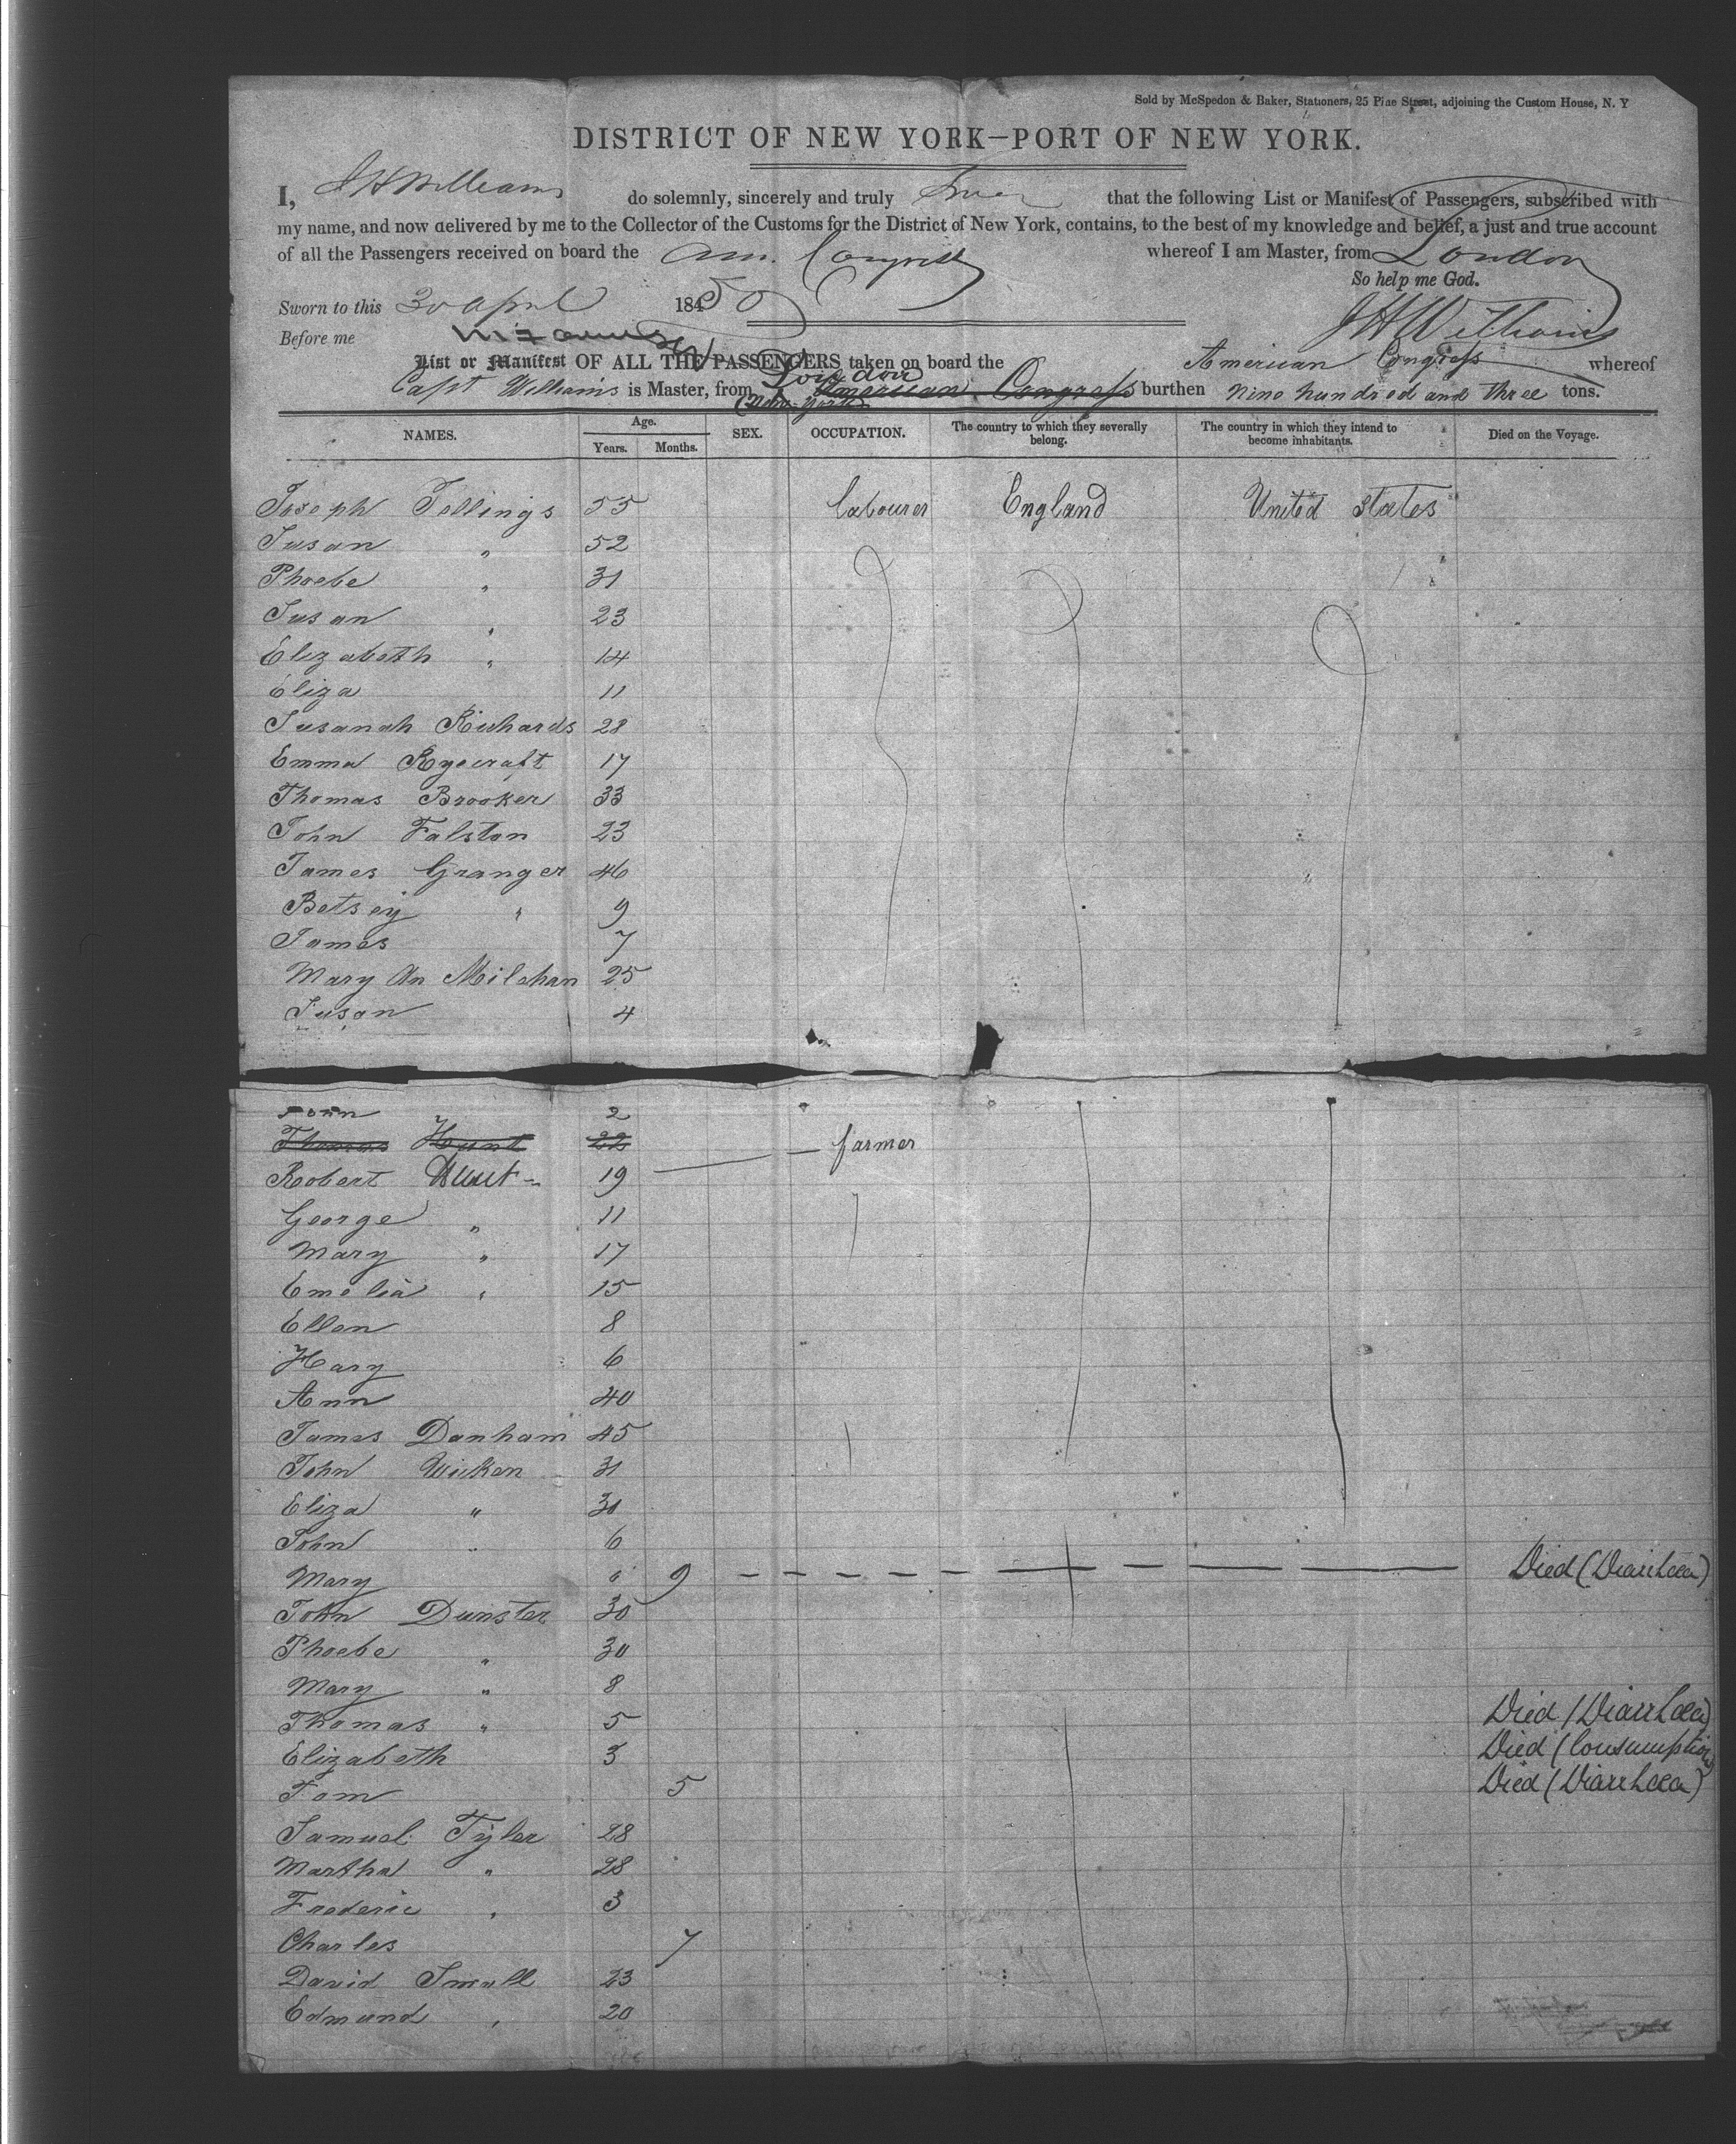 Sold by McSpedon & Baker, Stationers, 25 Pine Street, adjoining the Custom House, N. Y
DISTRICT OF NEW YORK—PORT OF NEW YORK.
I, J H Williams do solemnly, sincerely and truly Swear that the following List or Manifest of Passengers, subscribed with
my name, and now delivered by me to the Collector of the Customs for the District of New York, contains, to the best of my knowledge and belief, a just and true account
of all the Passengers received on board the Am. Congress whereof I am Master, from London
So help me God.
Sworn to this 30 April 1850
J H Williams
Before me
List or Manifest OF ALL THE PASSENGERS taken on board the American Congress whereof
Capt Williams is Master, from London American Congress burthen nine hundred and three tons.
New York
NAMES. Age. Years. Months. SEX. OCCUPATION. The country to which they severally belong. The country in which they intend to become inhabitants. Died on the Voyage.
Joseph Tellings 55 labourer England United States
Susan " 52
Phoebe " 31
Susan " 23
Elizabeth " 14
Eliza 11
Susanah Richards 28
Emma Ryecraft 17
Thomas Brooker 33
John Falston 23
James Granger 46
Betsey " 9
James 7
Mary An Milehan 25
Susan 4
John 2
Thomas Hunt 22 farmer
Robert Hunt 19
George " 11
Mary " 17
Emelia " 15
Ellen 8
Hary 6
Ann 40
James Danham 45
John Wicken 31
Eliza " 30
John " 6
Mary 9 Died (Diarrhoea)
John Dunster 30
Phoebe " 30
Mary " 8
Thomas " 5 Died (Diarrhoea)
Elizabeth 3 Died (Consumption)
Tom 5 Died (Diarrhoea)
Samuel Tyler 28
Martha " 28
Frederic " 3
Charles 7
David Small 23
Edmund " 20